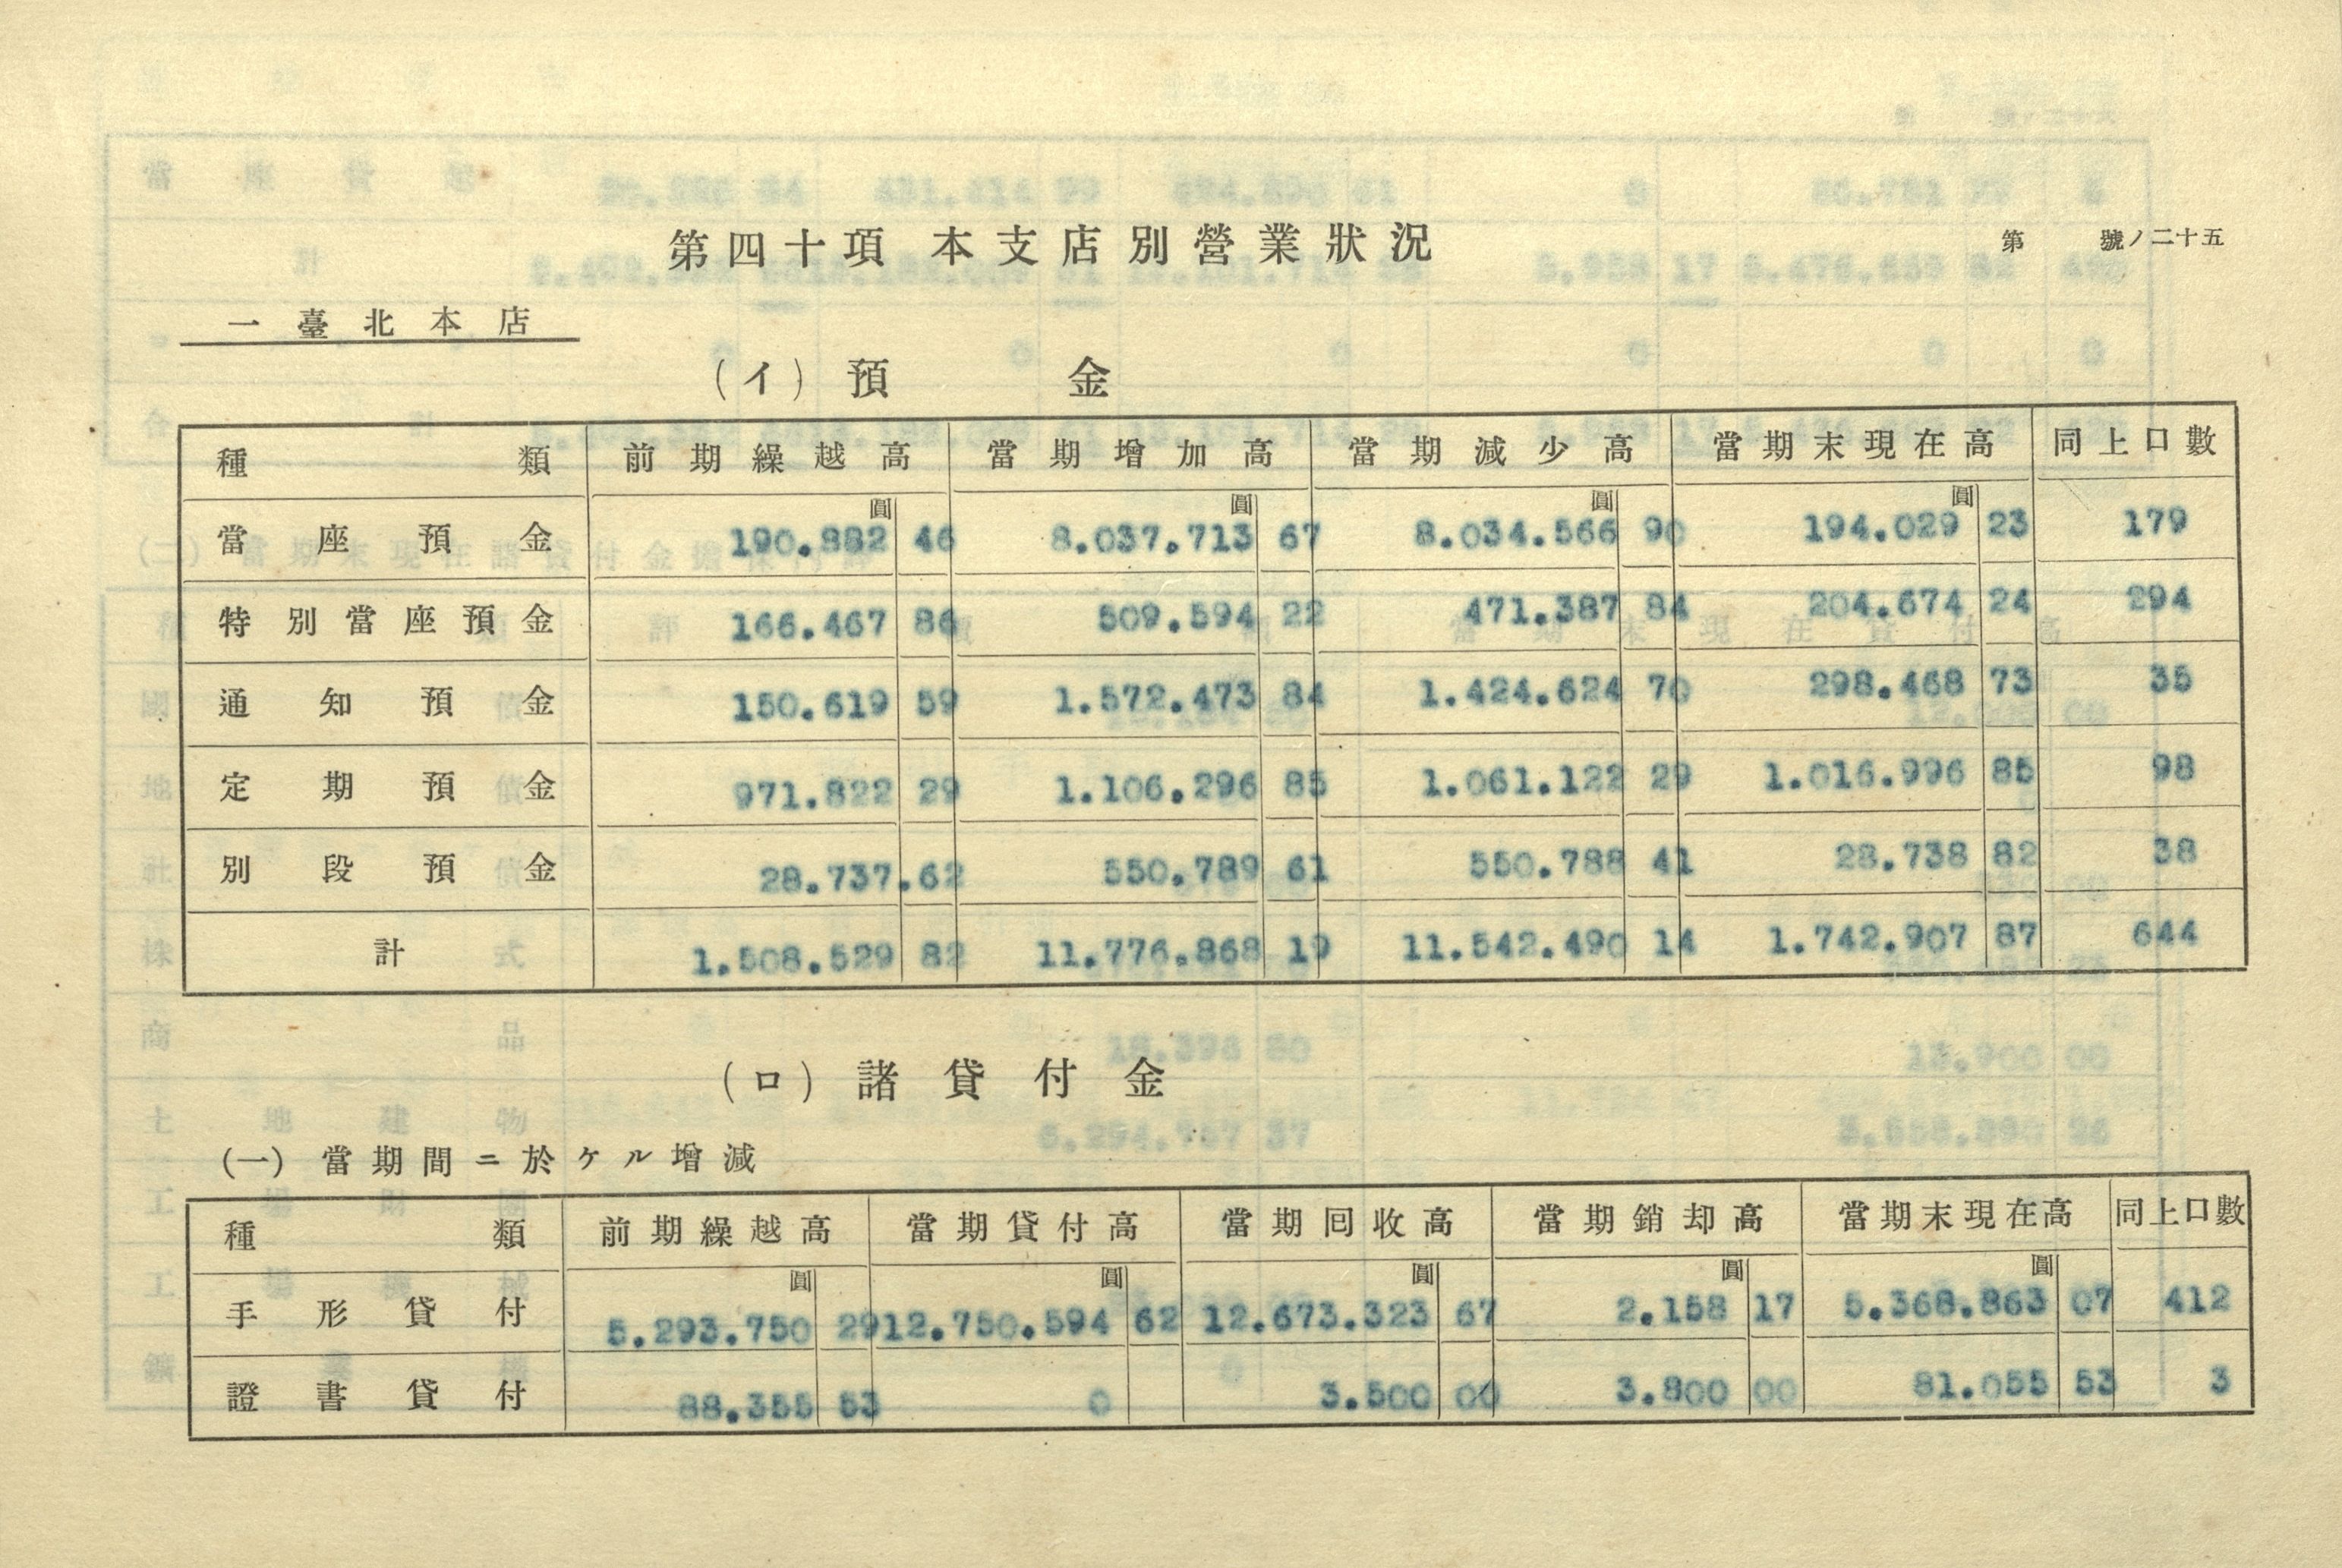 第四十項 本支店別營業狀況
第 號ノ二十五
一 臺北本店
(イ) 預 金
種類 前期繰越高 當期增加高 當期減少高 當期末現在高 同上口數
圓 圓 圓 圓
當座預金 190.882 46 8.037.713 67 8.034.566 90 194.029 23 179
特別當座預金 166.467 86 509.594 22 471.387 84 204.674 24 294
通知預金 150.619 59 1.572.473 84 1.424.624 70 298.468 73 35
定期預金 971.822 29 1.106.296 85 1.061.122 29 1.016.996 85 98
別段預金 28.737.62 550.789 61 550.788 41 28.738 82 38
計 1.508.529 82 11.776.868 19 11.542.490 14 1.742.907 87 644
(ロ) 諸貸付金
(一) 當期間ニ於ケル增減
種類 前期繰越高 當期貸付高 當期囘收高 當期銷却高 當期末現在高 同上口數
圓 圓 圓 圓 圓
手形貸付 5.293.750 29 12.750.594 62 12.673.323 67 2.158 17 5.368.863 07 412
證書貸付 88.355 53 0 3.500 00 3.800 00 81.055 53 3